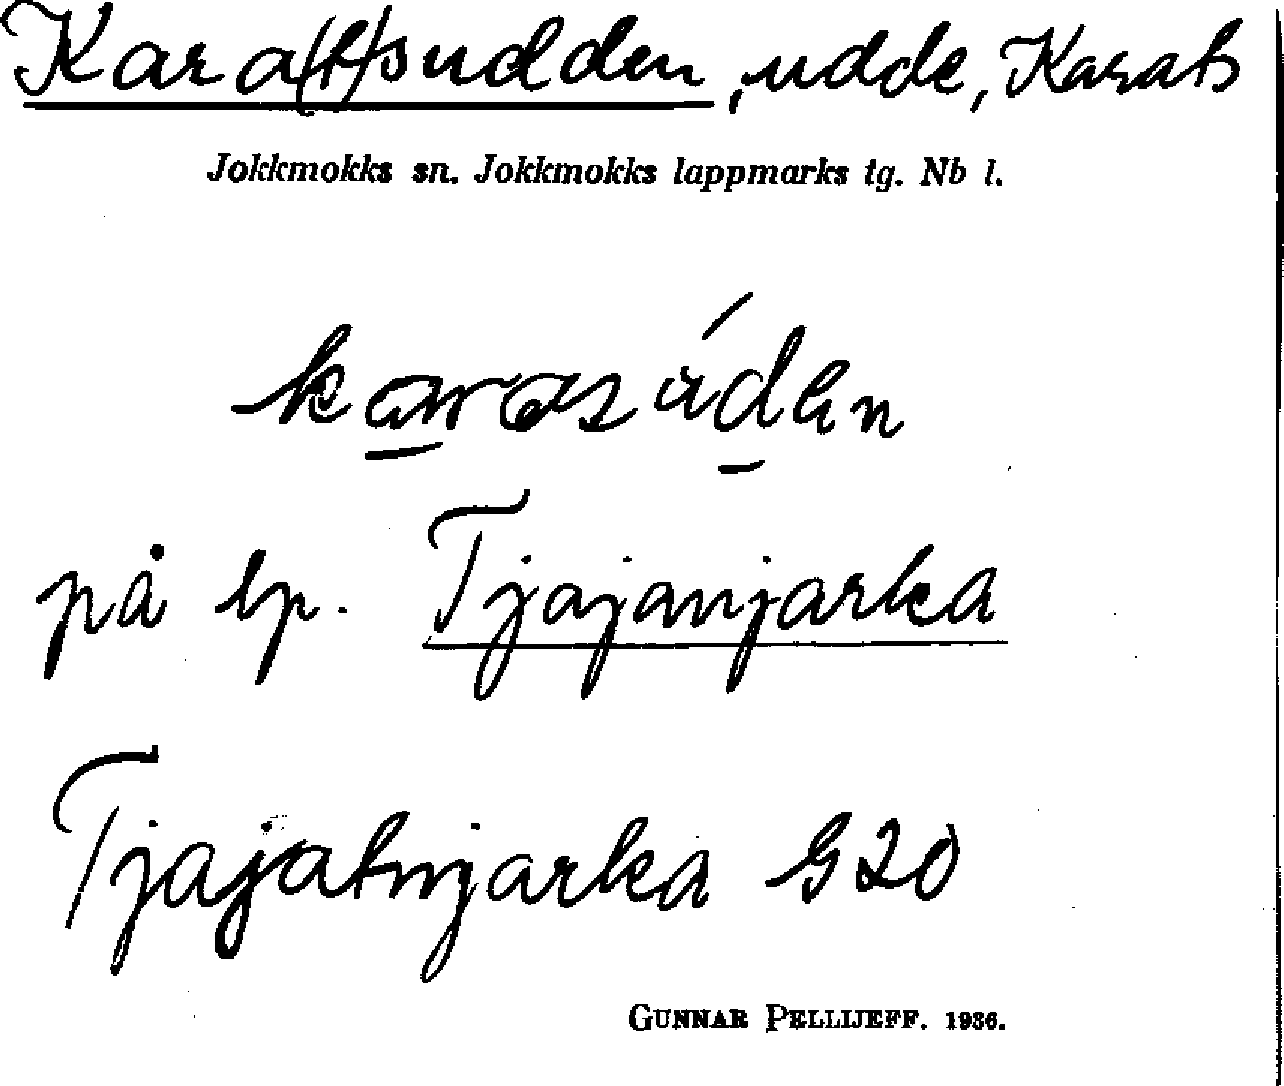 Kara(t)sudden, udde, Karats
Jokkmokks sn. Jokkmokks lappmarks tg. Nb l.
karasúden
på lp. Tjajanjarka
Tjajatnjarka G20
GUNNAR PELLIJEFF. 1936.